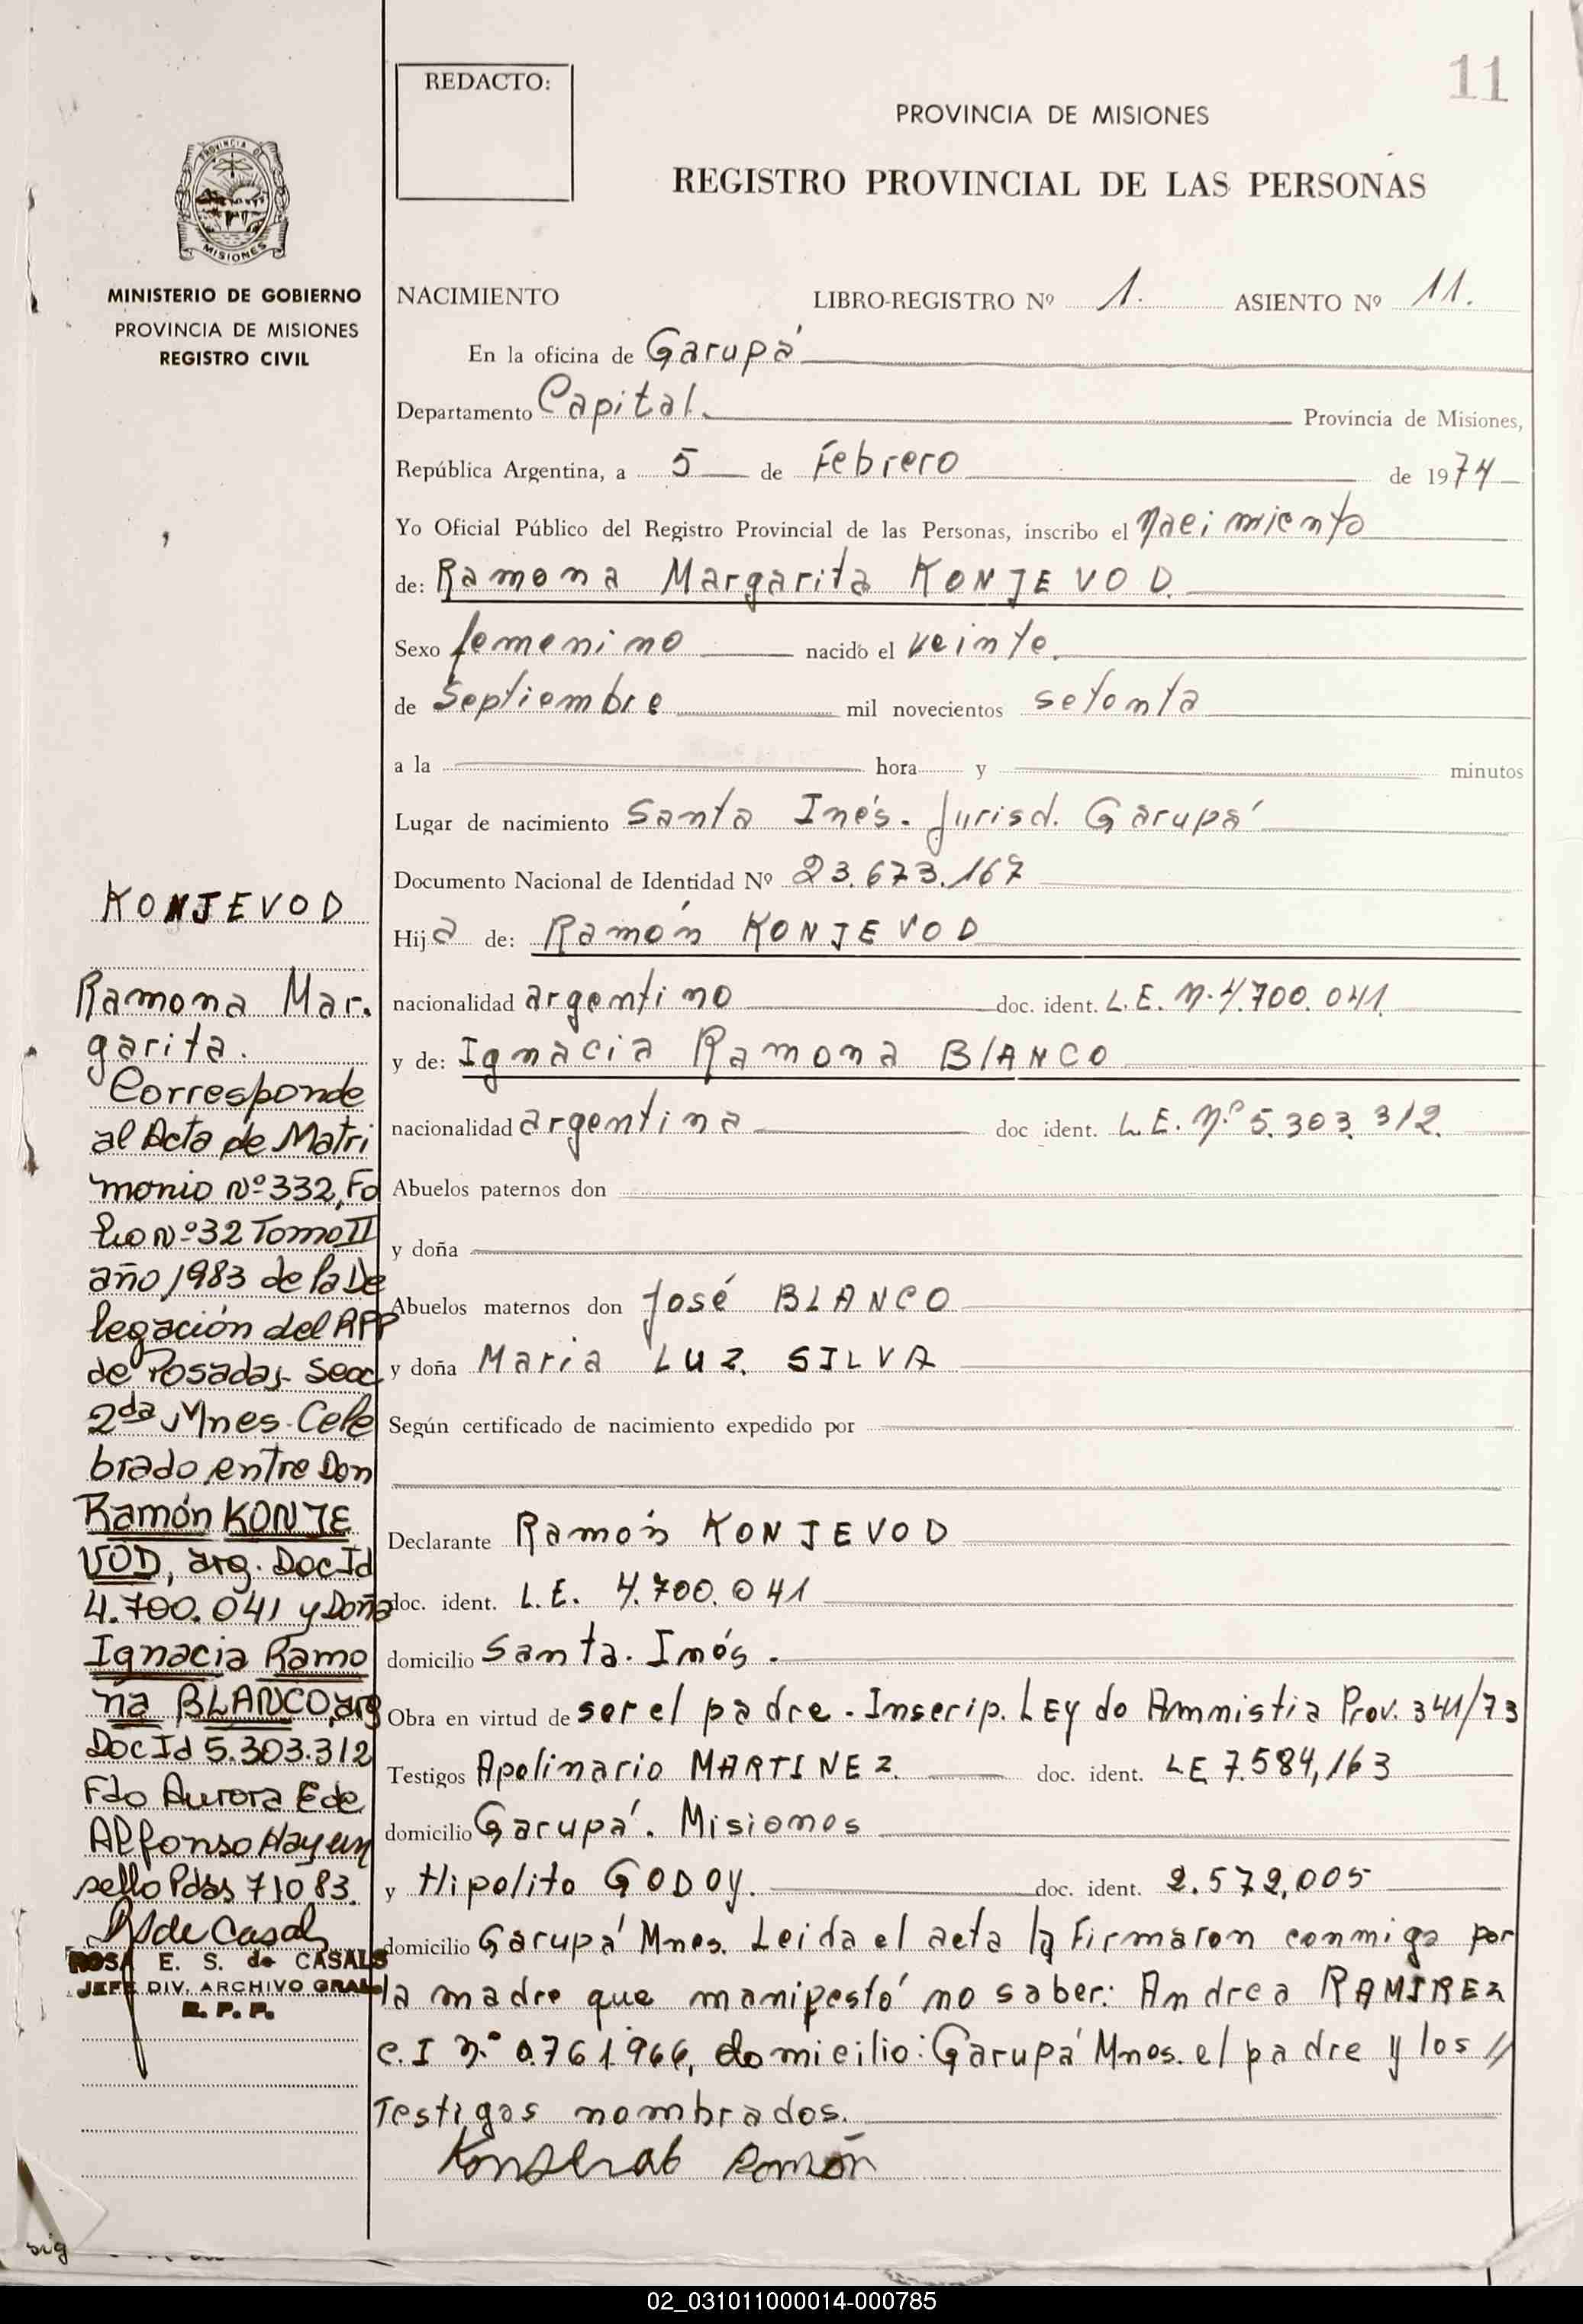 11
REDACTO:
PROVINCIA DE MISIONES
REGISTRO PROVINCIAL DE LAS PERSONAS
PROVINCIA DE
MISIONES
MINISTERIO DE GOBIERNO
PROVINCIA DE MISIONES
REGISTRO CIVIL
NACIMIENTO LIBRO-REGISTRO Nº 1. ASIENTO Nº 11.
En la oficina de Garupá
Departamento Capital. Provincia de Misiones,
República Argentina, a 5 de Febrero de 1974
Yo Oficial Público del Registro Provincial de las Personas, inscribo el Nacimiento
de: Ramona Margarita KONJEVOD.
Sexo femenino nacido el veinte.
de Septiembre mil novecientos setenta
a la hora y minutos
Lugar de nacimiento Santa Inés. Jurisd. Garupá
Documento Nacional de Identidad Nº 23.673.167
Hija de: Ramón KONJEVOD
nacionalidad argentino doc. ident. L.E. N. 4.700.041
y de: Ignacia Ramona BLANCO
nacionalidad argentina doc ident. L.E. Nº 5.303.312.
Abuelos paternos don
y doña
Abuelos maternos don José BLANCO
y doña Maria LUZ SILVA
Según certificado de nacimiento expedido por
Declarante Ramón KONJEVOD
doc. ident. L.E. 4.700.041
domicilio Santa. Inés.
Obra en virtud de ser el padre. Inscrip. LEy de Amnistia Prov. 341/73
Testigos Apolinario MARTINEZ. doc. ident. LE 7.584,163
domicilio Garupá. Misiones
y Hipolito GODOY. doc. ident. 2.572,005
domicilio Garupá Mnes. Leida el acta la firmaron conmigo por
la madre que manifestó no saber: Andrea RAMIREZ
C.I Nº 0.761.966, domicilio: Garupá Mnes. el padre y los //
Testigos nombrados.
Ramón
KONJEVOD
Ramona Mar.
garita.
Corresponde
al Acta de Matri
monio Nº 332, Fo
lio Nº 32 Tomo II
año 1983 de la De
legación del RPP
de Posadas Secc
2da Mnes. Cele
brado entre Don
Ramón KONJE
VOD, arg. Doc Id
4.700.041 y Doña
Ignacia Ramo
na BLANCO, arg
Doc Id 5.303.312
Fdo Aurora E de
Alfonso Hay un
sello Pdas 7 10 83.
R S de Casals
ROSA E. S. de CASALS
JEFE DIV. ARCHIVO GRAL
R. P. P.
sig
02_031011000014-000785